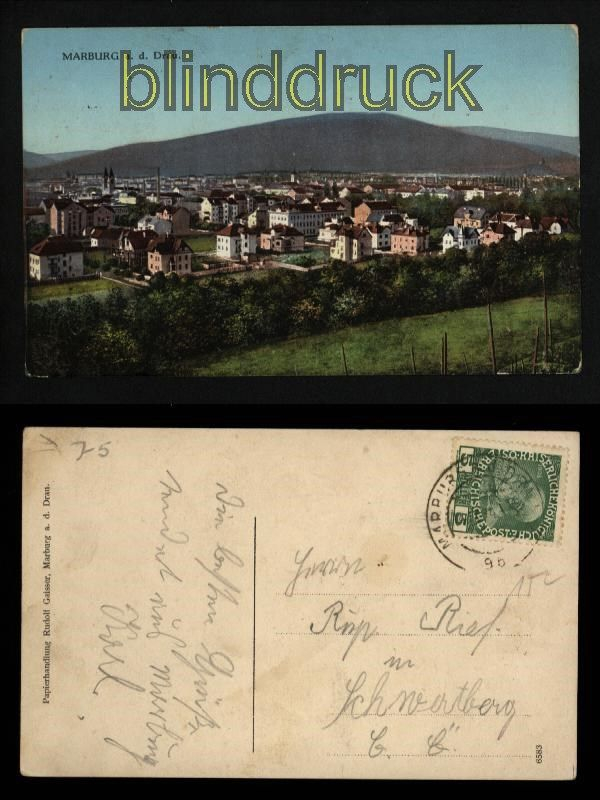 MARBURG a. d. Drau.
blinddruck
75
Papierhandlung Rudolf Gaisser, Marburg a. d. Drau.
Die besten Grüße
sendet aus Marburg
5
5
MARBURG
9b
Herrn
Rup. Riesl.
in
Schwertberg
O. Ö.
6583